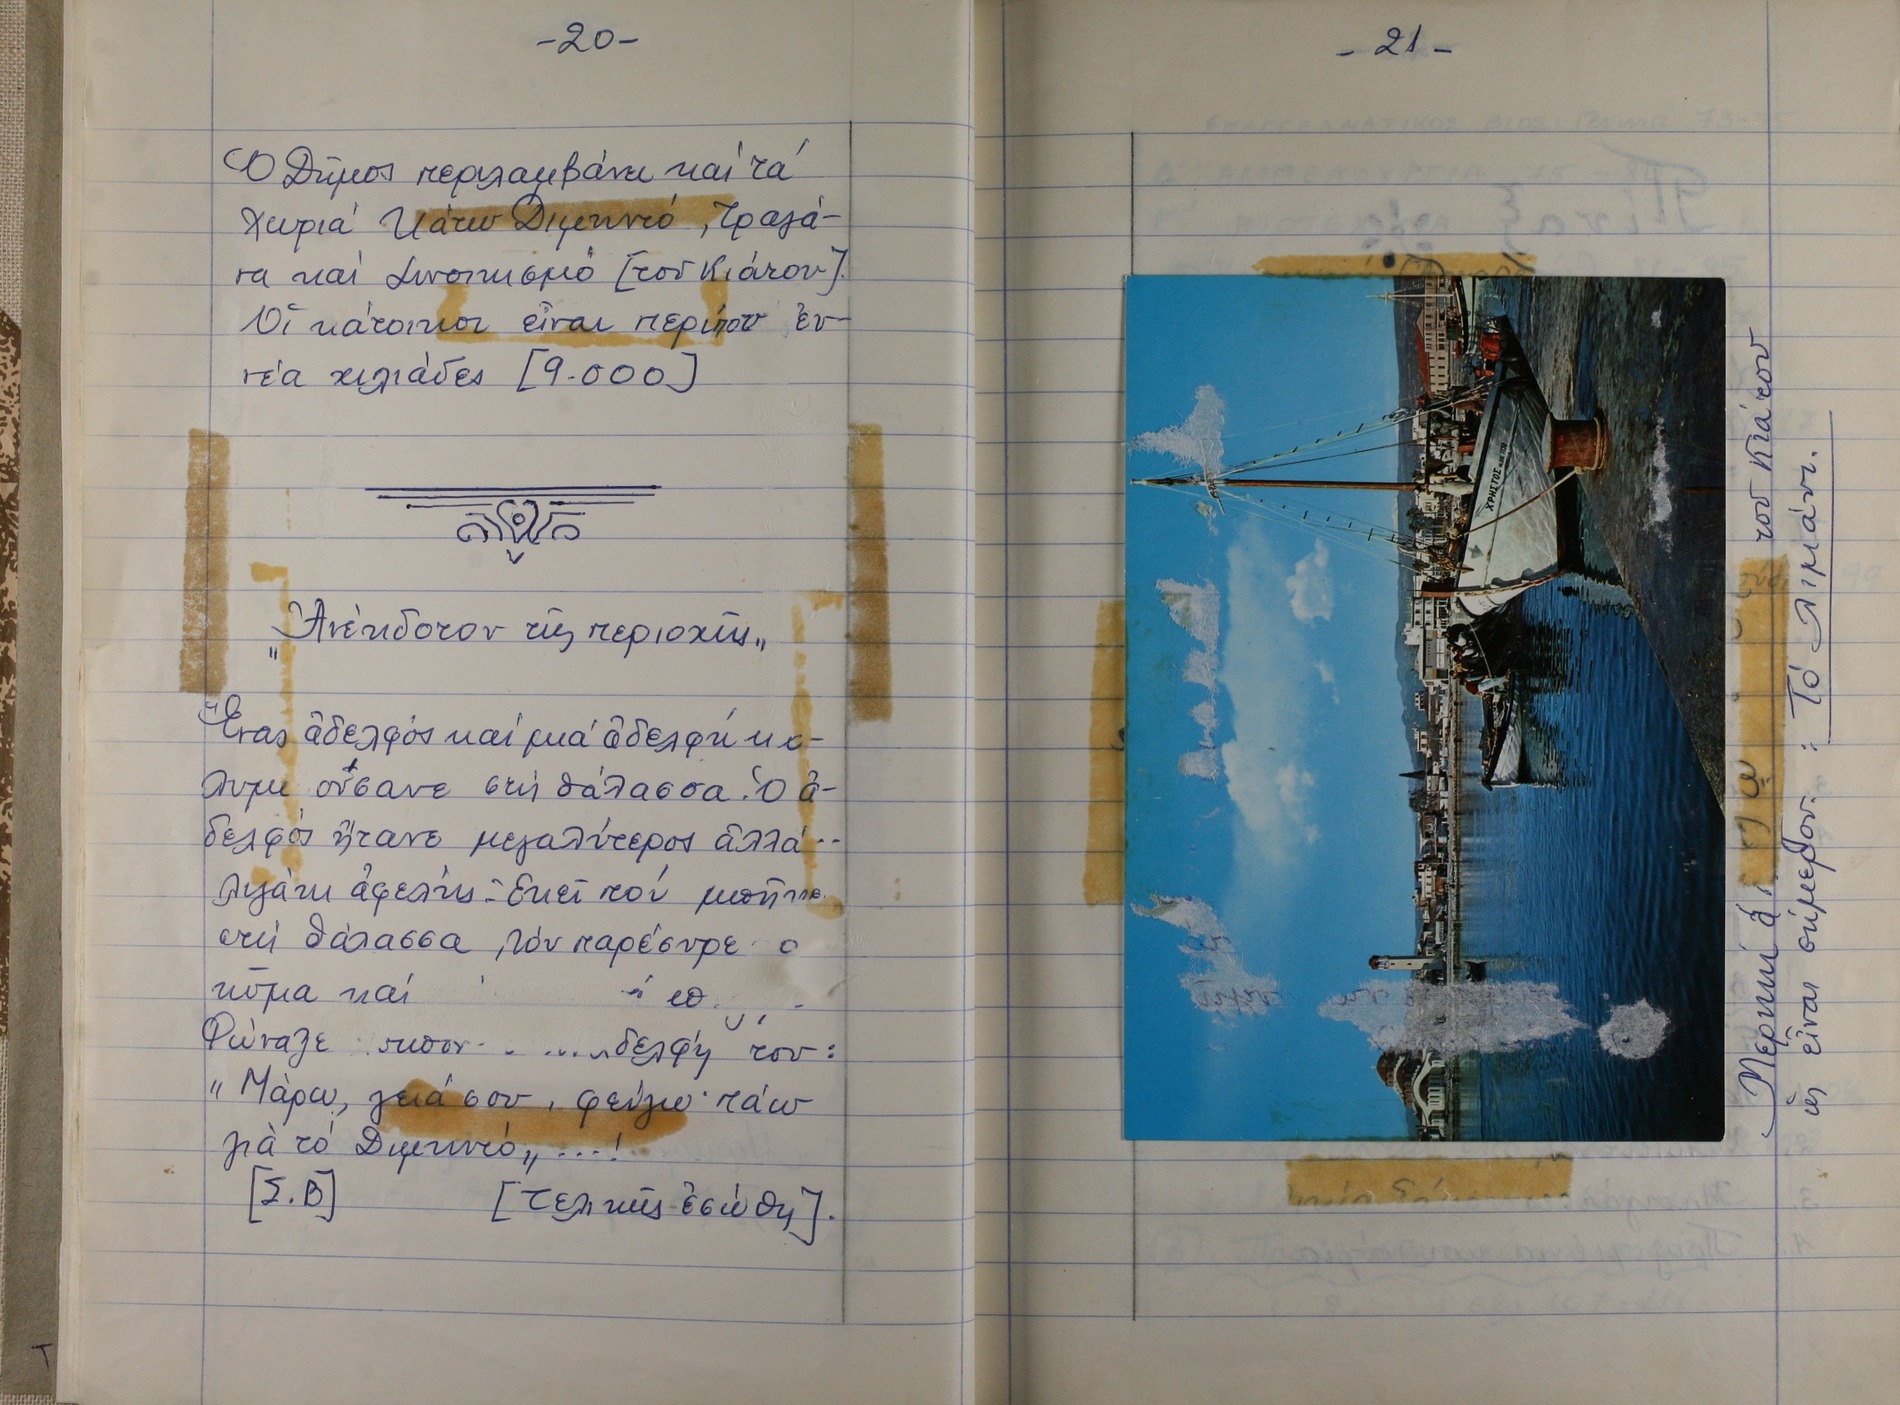 -20-
Ὁ Δῆμος περιλαμβάνει καί τά
χωριά Κάτω Διμηνιό, Τραγά-
να καί Συνοικισμό [τοῦ Κιάτου].
Οἱ κάτοικοι εἶναι περίπου ἐν-
νέα χιλιάδες [9.000]
„Ἀνέκδοτον τῆς περιοχῆς„
Ἕνας ἀδελφός καί μιά ἀδελφή κο-
λυμπούσανε στή θάλασσα. Ὁ ἀ-
δελφός ἤτανε μεγαλύτερος ἀλλά..
λιγάκι ἀφελής. Ἐκεῖ πού
στή θάλασσα, τόν παρέσυρε ο
κῦμα καί
Φώναξε δελφή του:
„Μάρω, γειά σου, φεύγω πάω
γιὰ τό Διμηνιό„ ....!
[Σ.Β] [Τελικῆς ἐσώθη].
-21-
ΧΡΗΣΤΟΣ
Μερική ἄ τοῦ Κιάτου
ὡς εἶναι σήμερον. : Τό Λιμάνι.